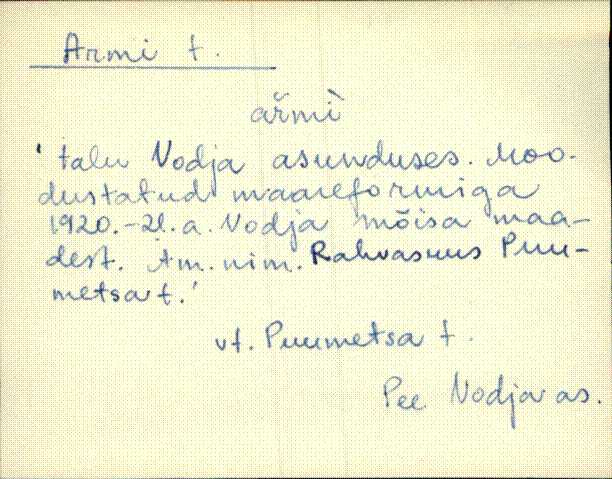 Armi t.
ařmì
'talu Nodja asunduses. Moo-
dustatud maareformiga
1920.-21.a. Nodja mõisa maa-
dest. Am. nim. Rahvasuus Puu-
metsa t.'
vt. Puumetsa t.
Pee Nodja as.